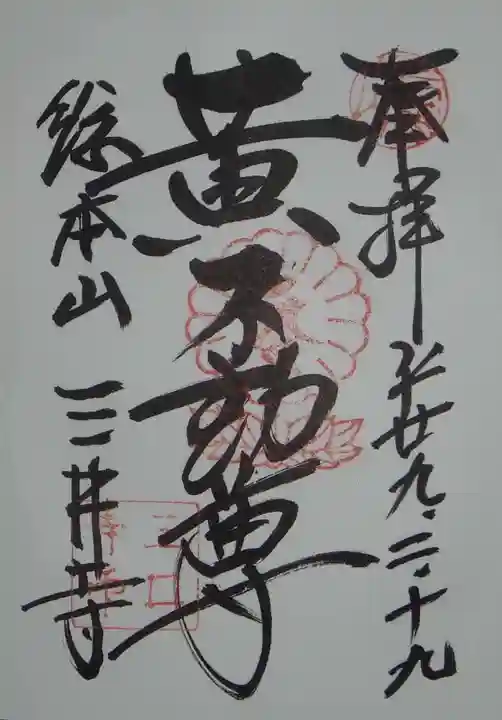 奉拝 平廿九、二、十九
黄不動尊
総本山 三井寺